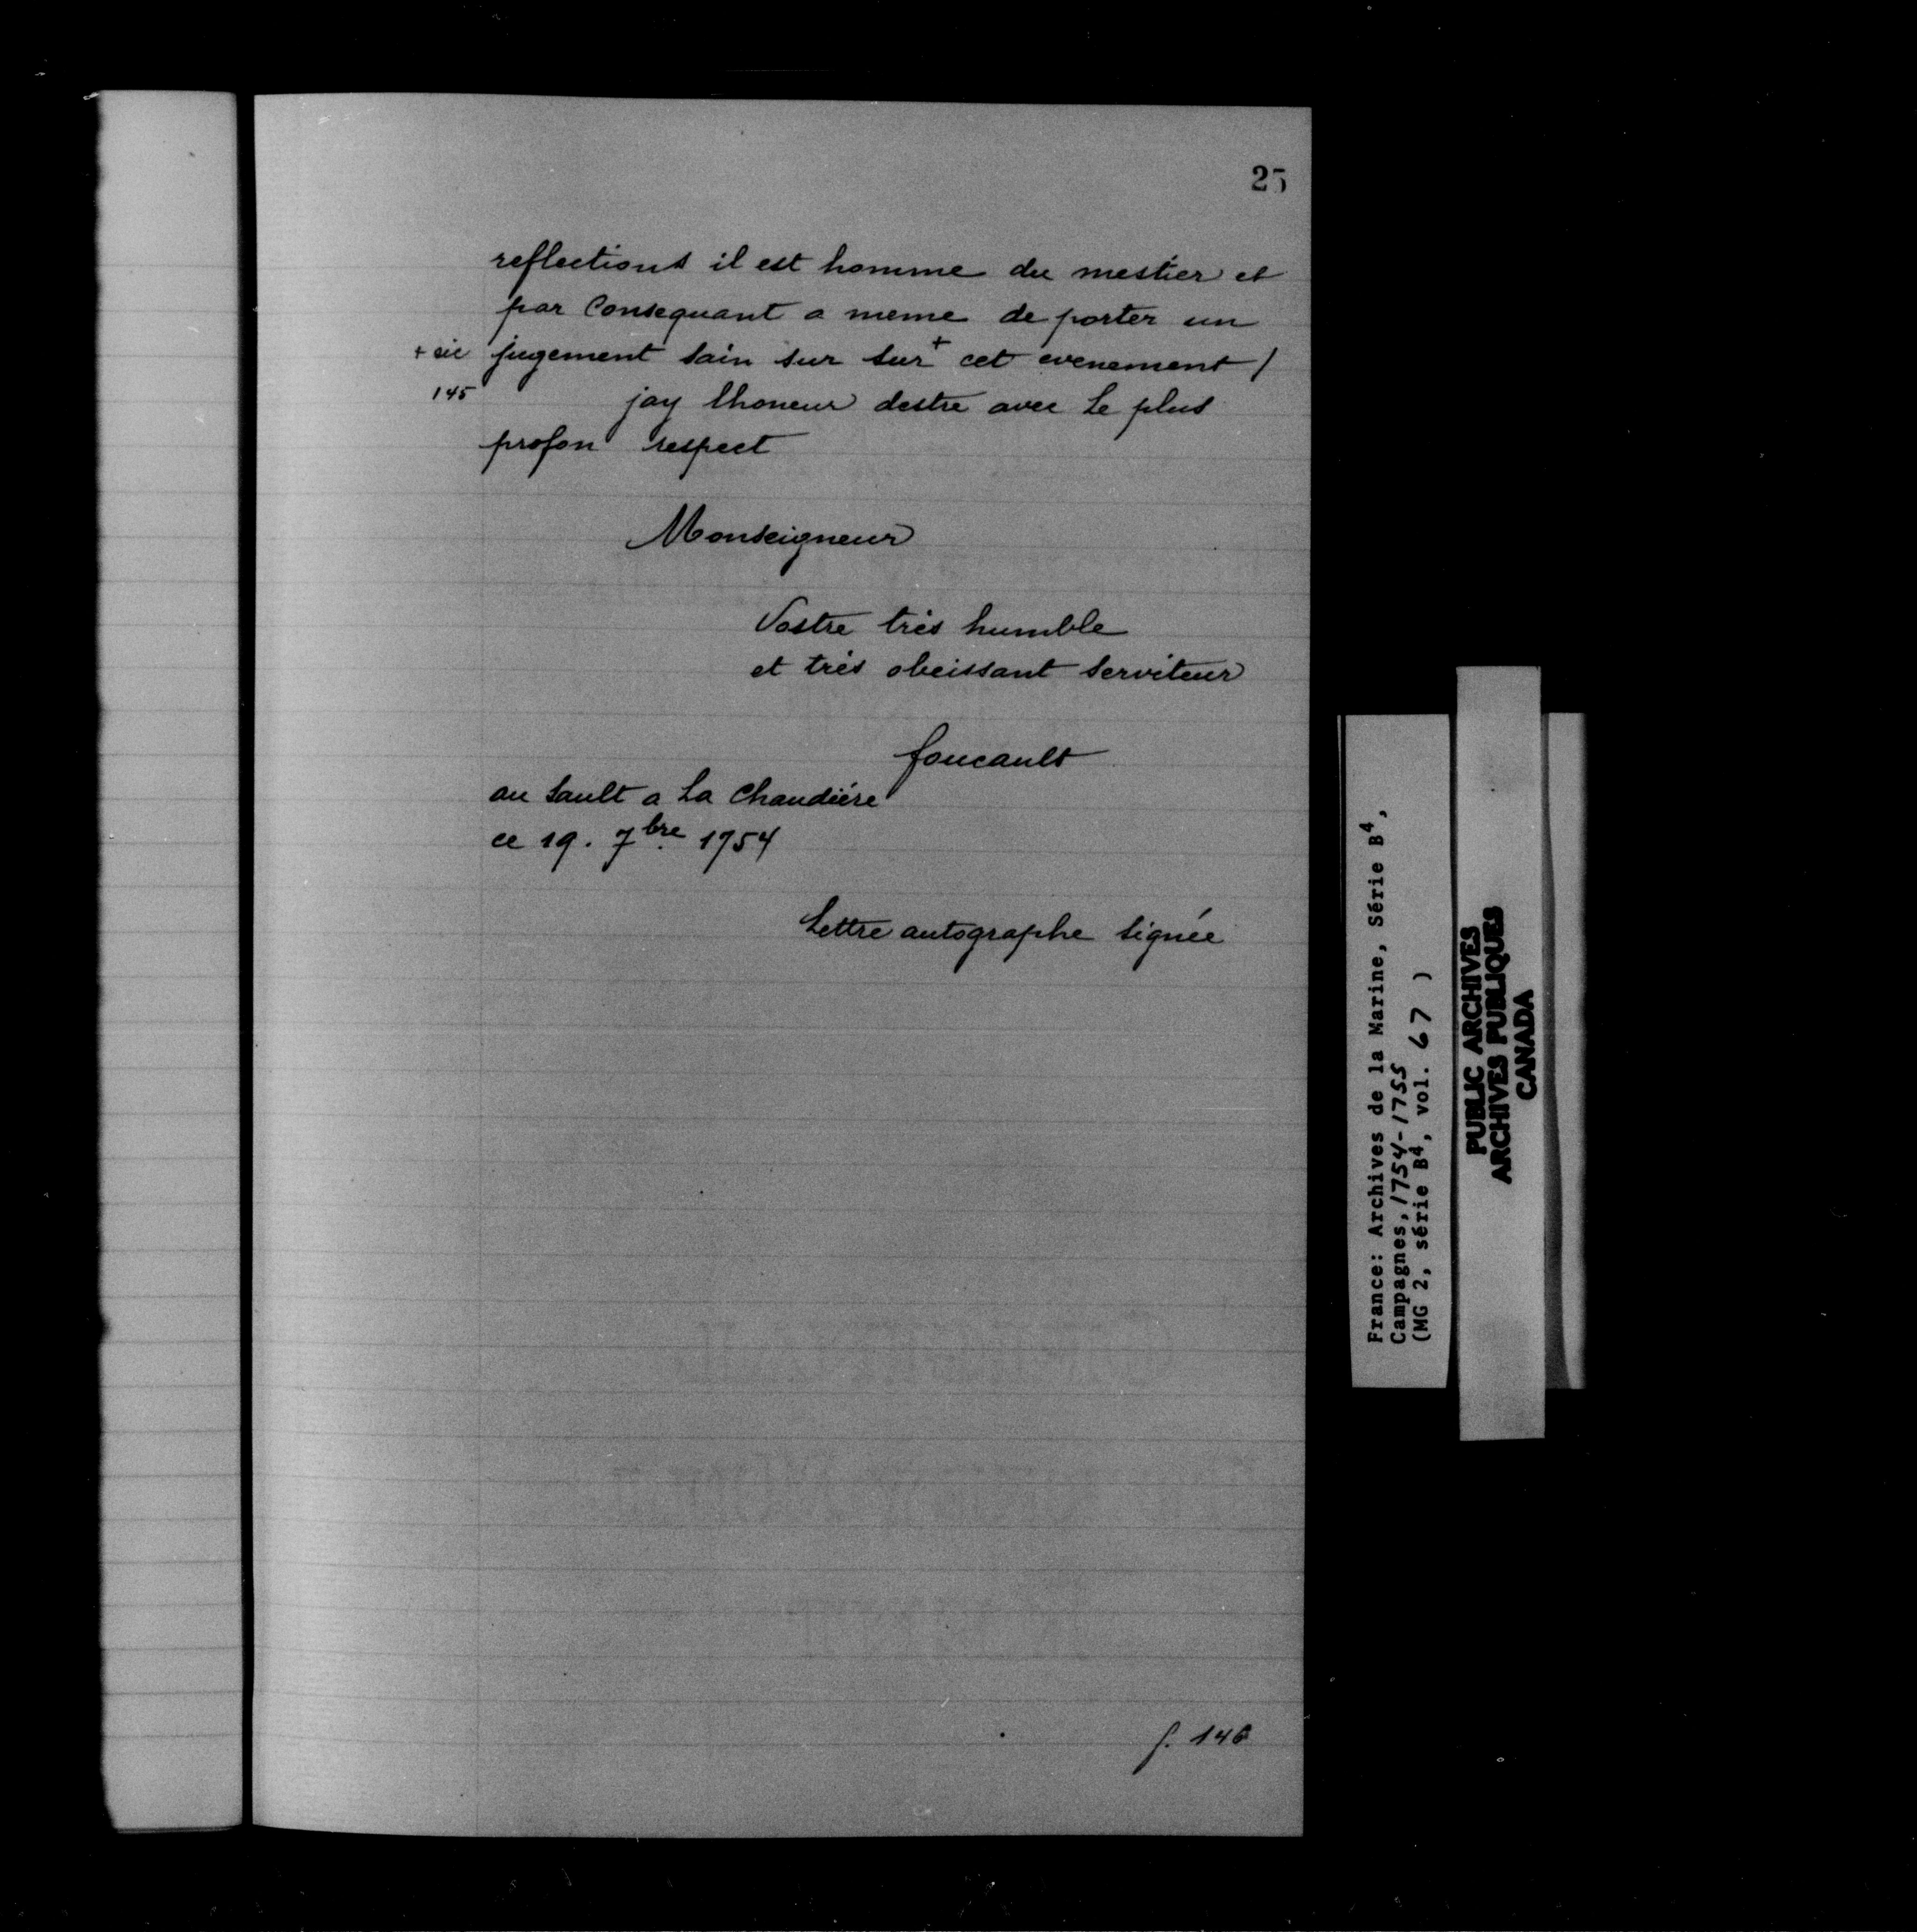 25
reflections il est homme du mestier et
par Consequant a meme de porter un
+ sic jugement sain sur sur + cet evenement /
145 jay lhoneur destre avec Le plus
profon respect
Monseigneur
Vostre très humble
et très obeissant Serviteur
foucault
au Sault a La Chaudière
ce 19. 7bre 1754
Lettre autographe signée
f. 146
France: Archives de la Marine, Série B4,
Campagnes, 1754-1755
(MG 2, série B4, vol. 67 )
PUBLIC ARCHIVES
ARCHIVES PUBLIQUES
CANADA